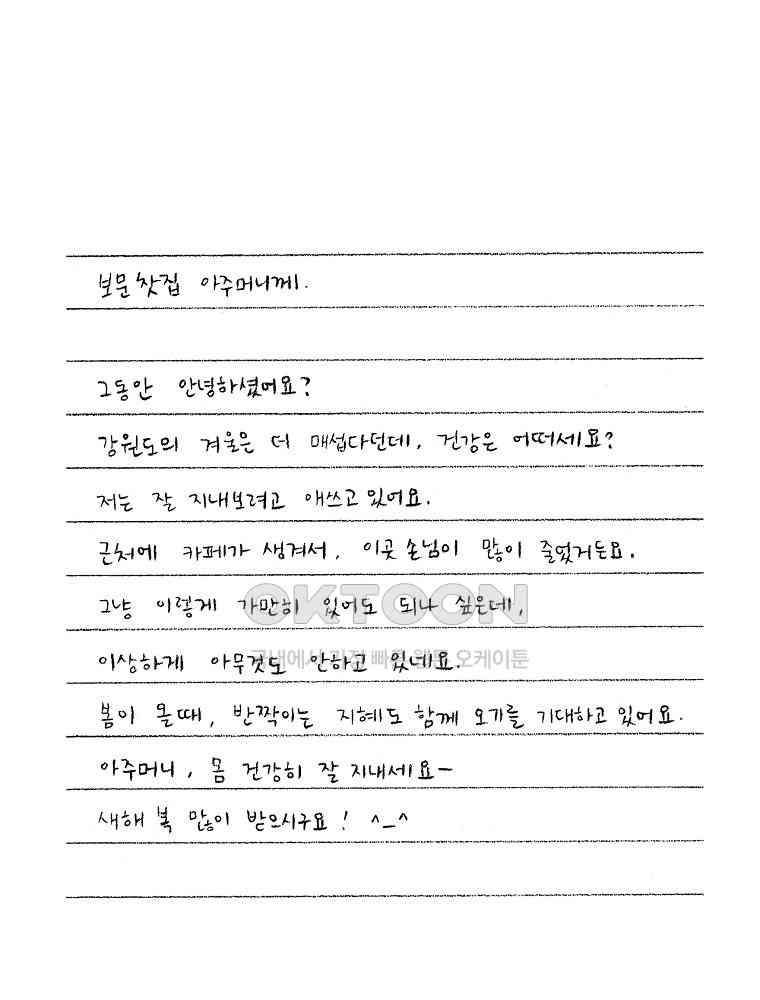 보문찻집 아주머니께.
그동안 안녕하셨어요?
강원도의 겨울은 더 매섭다던데, 건강은 어떠세요?
저는 잘 지내보려고 애쓰고 있어요.
근처에 카페가 생겨서, 이곳 손님이 많이 줄었거든요.
그냥 이렇게 가만히 있어도 되나 싶은데,
OKTOON
이상하게 아무것도 안하고 있네요.
국내에서 가장 빠른 웹툰 오케이툰
봄이 올때, 반짝이는 지혜도 함께 오기를 기대하고 있어요.
아주머니, 몸 건강히 잘 지내세요-
새해 복 많이 받으시구요! ^_^